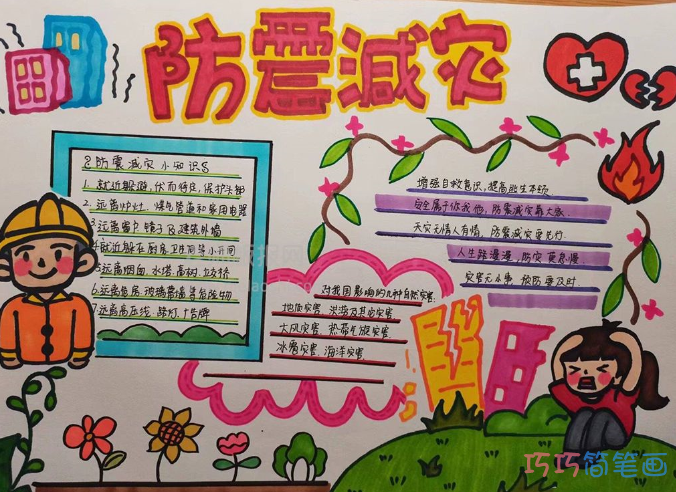 防震减灾
防震减灾小知识
1. 就近躲避,伏而待定,保护头部
2. 远离炉灶、煤气管道和家用电器
3 远离窗户 镜子及建筑外墙
4 就近躲在厨房 卫生间等小开间
5 远离烟囱、水塔、高树、立交桥
6 远离危房 玻璃幕墙等危险物
7 远离高压线、路灯、广告牌
对我国影响的几种自然灾害:
地质灾害 洪涝及其次灾害
大风灾害 热带气旋灾害
冰雹灾害、海洋灾害
增强自救意识,提高逃生本领
安全属于你我他,防震减灾靠大家
天灾无情人有情,防震减灾要先行
人生路漫漫,防灾莫怠慢
灾害无小事 预防要及时
巧巧简笔画